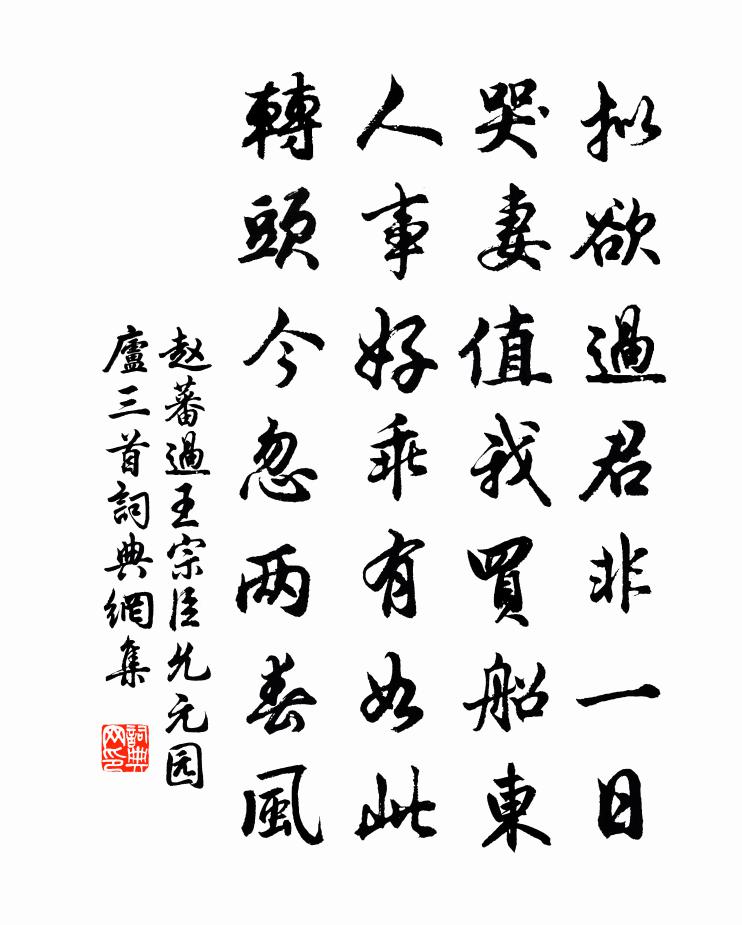 拟欲過君非一日
哭妻值我買船東
人事好乖有如此
轉頭今忽两春風
赵蕃過王宗臣允元园
廬三首詞典網集
詞典
网印